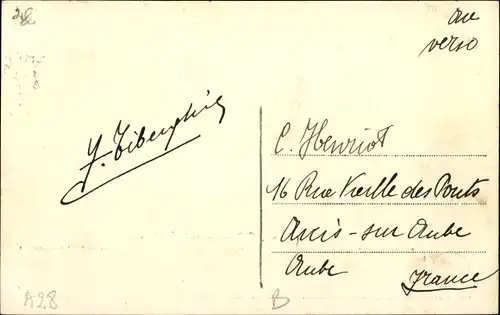 au
verso
C. Henriot
16 Rue Vieille des Ponts
Arcis-sur Aube
Aube
France
A28
B